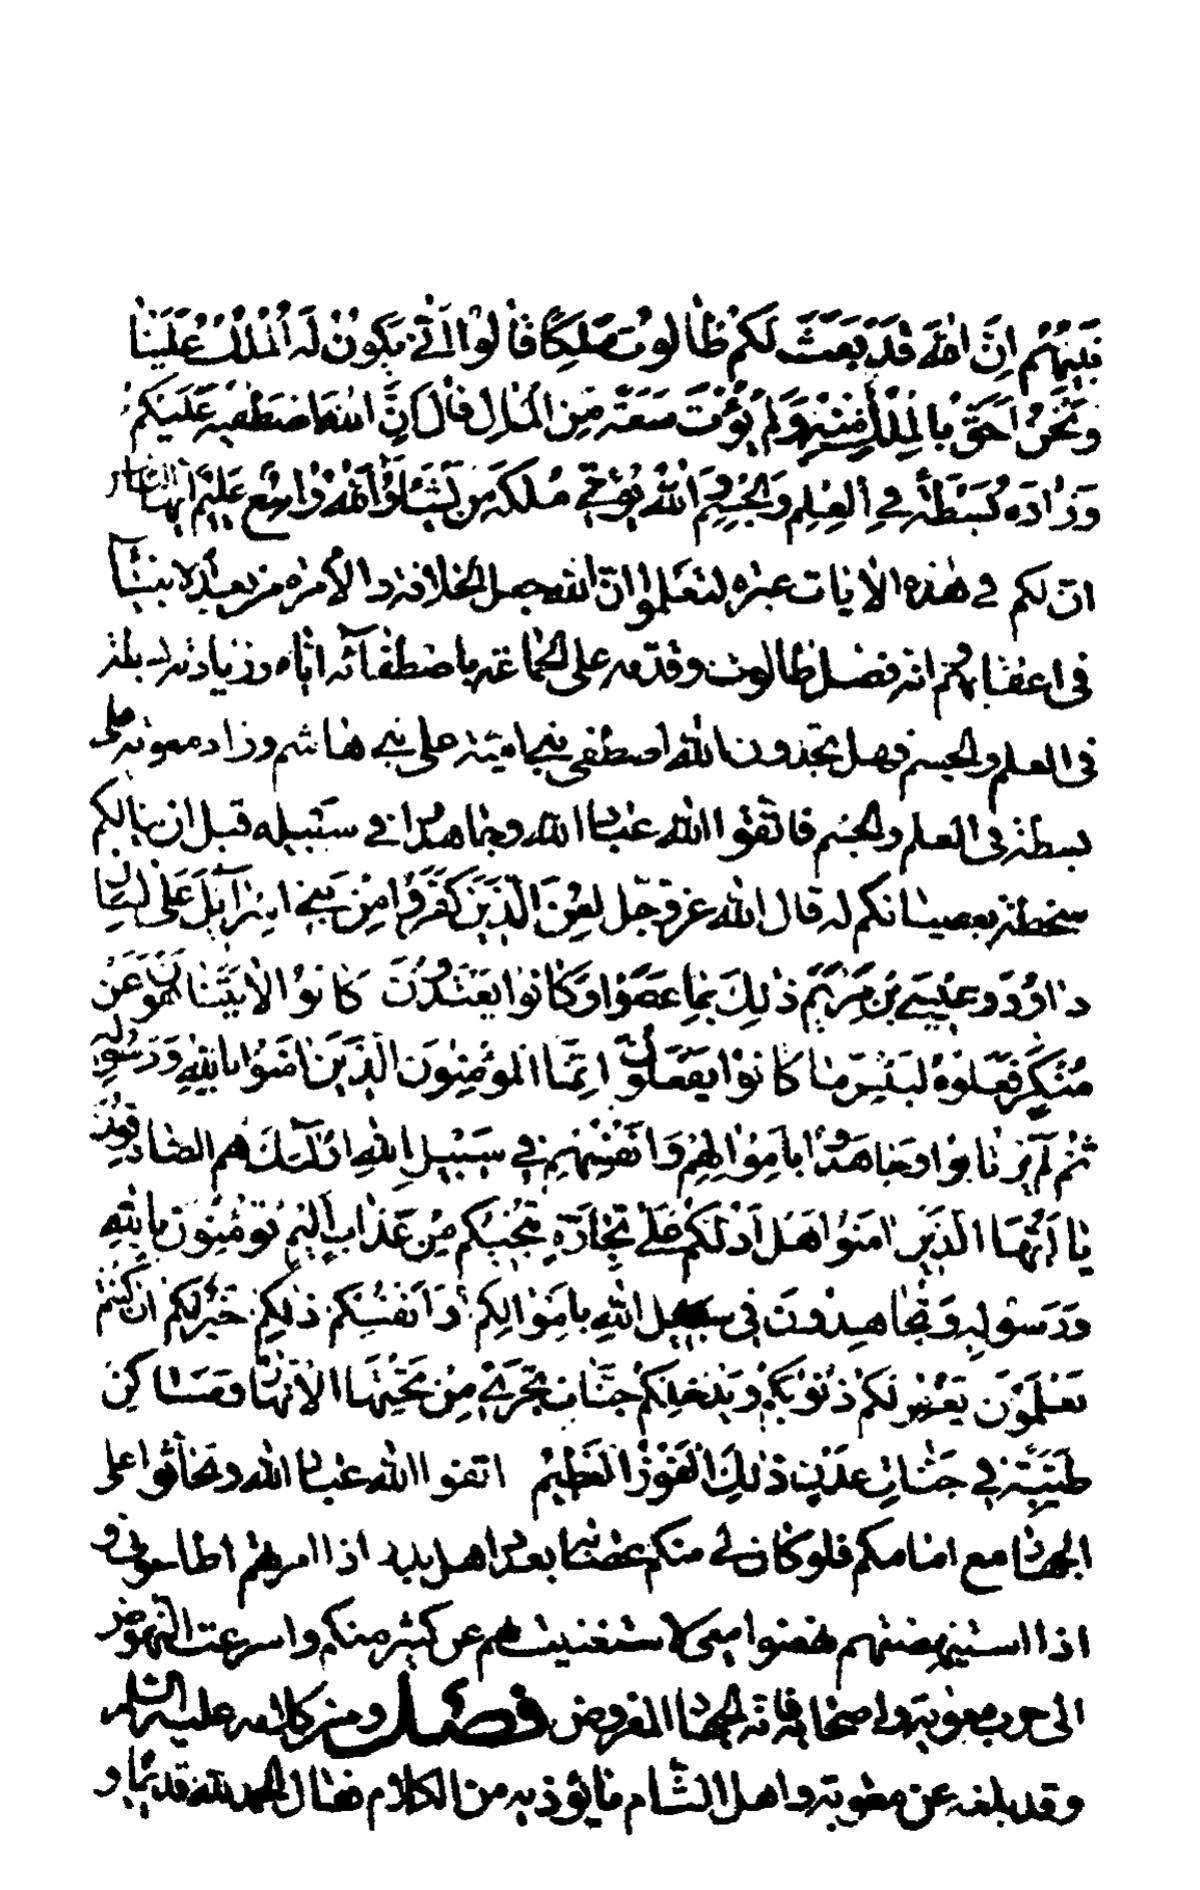 نَبِيُّهُمْ اِنَّ اللهَ قَدْ بَعَثَ لَكُمْ طالُوتَ مَلِكًا قالُوا اَنّى يَكُونُ لَهُ الْمُلْكُ عَلَيْنا
وَنَحْنُ اَحَقُّ بِالْمُلْكِ مِنْهُ وَلَمْ يُؤْتَ سَعَةً مِنَ الْمالِ قالَ اِنَّ اللهَ اصْطَفيهُ عَلَيْكُمْ
وَزادَهُ بَسْطَةً فِي الْعِلْمِ وَالْجِسْمِ وَاللهُ يُؤْتي مُلْكَهُ مَنْ يَشاءُ وَاللهُ واسِعٌ عَليمٌ ايّها النّاس
انّ لكم في هذه الآيات عبرة لتعلموا انّ الله جعل الخلافة والأمرة من بعد الانبياء
فى اعقابهم وانه فضل طالوت وقدّمه على الجماعة باصطفائه ايّاه وزيادته بسطة
فى العلم والجسم فهل تجدون الله اصطفى بني امية على بني هاشم وزاد معوية علىّ
بسطة فى العلم والجسم فاتّقوا الله عباد الله وجاهدوا في سبيله قبل ان ينالكم
سخطه بعصيانكم له قال الله عزّ وجلّ لُعِنَ الَّذينَ كَفَرُوا مِنْ بَني اِسْرآئيلَ عَلى لِسانِ
داوُدَ وَعيسَى بْنِ مَرْيَمَ ذلِكَ بِما عَصَوْا وَكانُوا يَعْتَدُونَ كانُوا لايَتَناهَوْنَ عَنْ
مُنْكَرٍ فَعَلُوهُ لَبِئْسَ ما كانُوا يَفْعَلُونَ اِنَّمَا الْمُؤْمِنُونَ الَّذينَ امَنُوا بِاللهِ وَرَسُولِه
ثُمَّ لَمْ يَرْتابُوا وَجاهَدُوا بِاَمْوالِهِمْ وَاَنْفُسِهِمْ في سَبيلِ اللهِ اُولئِكَ هُمُ الصّادِقُونَ
يا اَيُّهَا الَّذينَ امَنُوا هَلْ اَدُلُّكُمْ عَلى تِجارَةٍ تُنْجيكُمْ مِنْ عَذابٍ اَليمٍ تُؤْمِنُونَ بِاللهِ
وَرَسُولِه وَتُجاهِدُونَ في سَبيلِ اللهِ بِاَمْوالِكُمْ وَاَنْفُسِكُمْ ذلِكُمْ خَيْرٌ لَكُمْ اِنْ كُنْتُمْ
تَعْلَمُونَ يَغْفِرْ لَكُمْ ذُنُوبَكُمْ وَيُدْخِلْكُمْ جَنّاتٍ تَجْري مِنْ تَحْتِهَا الاَنْهارُ وَمَساكِنَ
طَيِّبَةً في جَنّاتِ عَدْنٍ ذلِكَ الْفَوْزُ الْعَظيمُ اتقوا الله عباد الله وتحاثّوا على
الجهاد مع امامكم فلو كان لي منكم عصابة بعدد اهل بدر اذا امرتهم اطاعونى و
اذا استنهضتهم نهضوا معى لاستغنيت بهم عن كثير منكم واسرعت النهوض
الى حرب معوية واصحابه فانّه الجهاد المفروض فصل ومن كلامه عليه السّلام
وقد بلغه عن معوية واهل الشّام ما يؤذيه من الكلام فقال الحمد لله قديما و